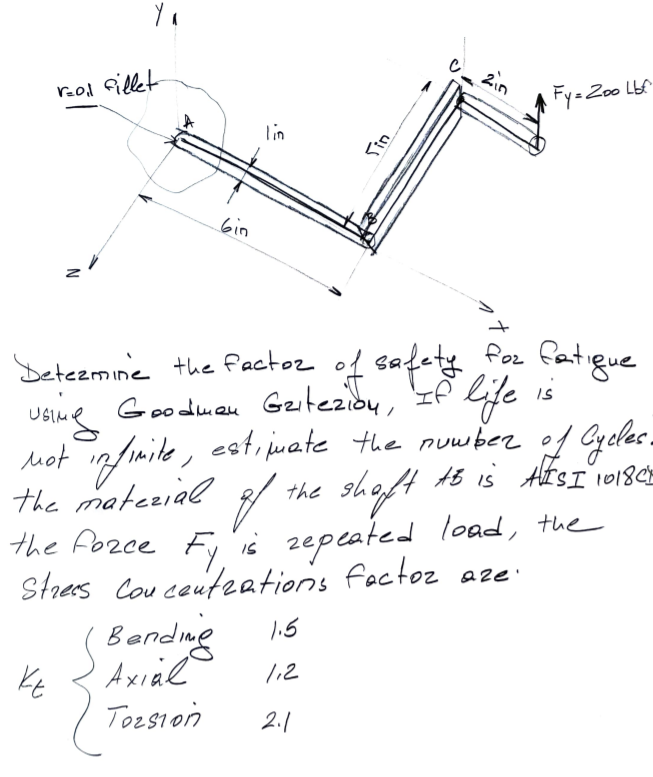 Y
r=0.1 fillet
A
1in
6in
5in
C
2in
Fy=200 Lbf
B
Z
X
Determine the factor of safety for fatigue
using Goodman Criterion, If life is
not infinite, estimate the number of Cycles.
the material of the shaft AB is AISI 1018CD
the force Fy is repeated load, the
Stress Concentrations factor are:
Kt { Bending 1.5
Axial 1.2
Torsion 2.1